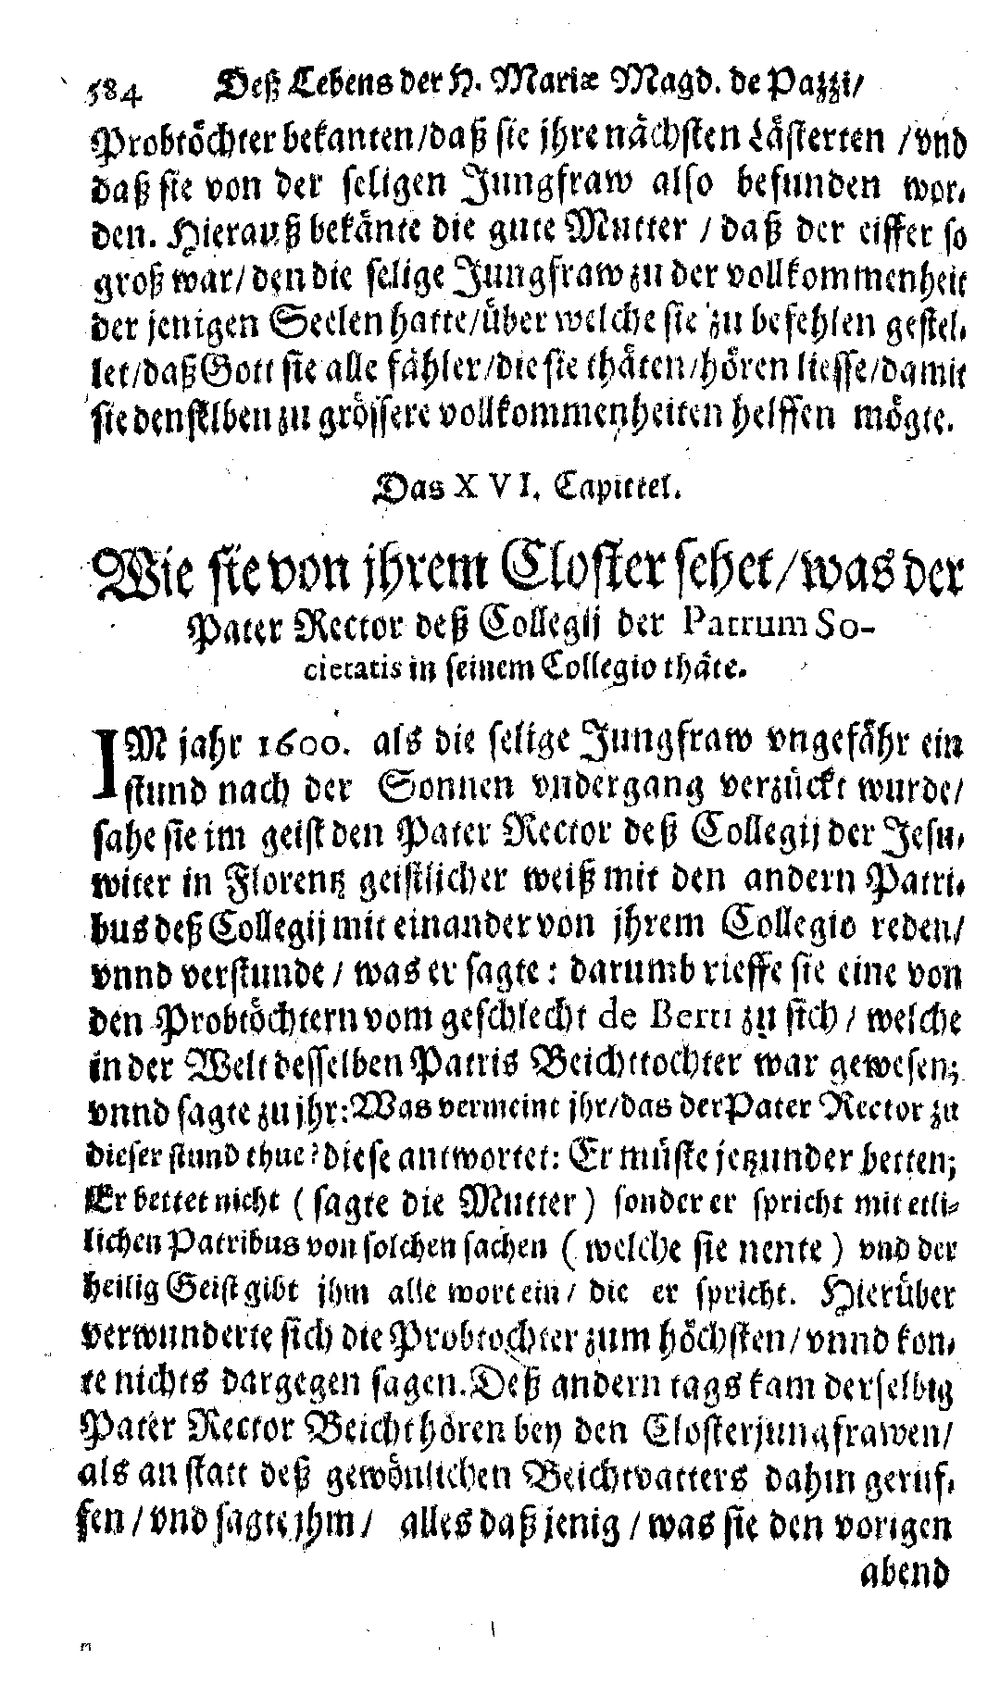 584 Deß Lebens der H. Mariæ Magd. de Pazzi/
Probtöchter bekanten/daß sie jhre nächsten Lästerten /vnd
daß sie von der seligen Jungfraw also befunden wor-
den. Hierauß bekänte die gute Mutter / daß der eiffer so
groß war/ den die selige Jungfraw zu der vollkommenheit
der jenigen Seelen hatte/über welche sie zu befehlen gestel-
let/daß Gott sie alle fähler/die sie thäten/hören liesse/damit
sie denselben zu grössere vollkommenheiten helffen mögte.
Das XVI. Capittel.
Wie sie von jhrem Closter sehet/was der
Pater Rector deß Collegij der Patrum So-
cietatis in seinem Collegio thäte.
IM jahr 1600. als die selige Jungfraw vngefähr ein
stund nach der Sonnen vndergang verzückt wurde/
sahe sie im geist den Pater Rector deß Collegij der Jesu-
witer in Florentz geistlicher weiß mit den andern Patri-
bus deß Collegij mit einander von jhrem Collegio reden/
vnnd verstunde / was er sagte: darumb rieffe sie eine von
den Probtöchtern vom geschlecht de Berti zu sich / welche
in der Welt desselben Patris Beichttochter war gewesen;
vnnd sagte zu jhr: Was vermeint jhr/das der Pater Rector zu
dieser stund thue? diese antwortet: Er müste jetzunder betten;
Er bettet nicht ( sagte die Mutter ) sonder er spricht mit etli-
lichen Patribus von solchen sachen ( welche sie nente ) vnd der
heilig Geist gibt jhm alle wort ein/ die er spricht. Hierüber
verwunderte sich die Probtochter zum höchsten/ vnnd kon-
te nichts dargegen sagen. Deß andern tags kam derselbig
Pater Rector Beicht hören bey den Closterjungfrawen/
als an statt deß gewönlichen Beichtvatters dahin geruf-
fen / vnd sagte jhm / alles daß jenig / was sie den vorigen
abend